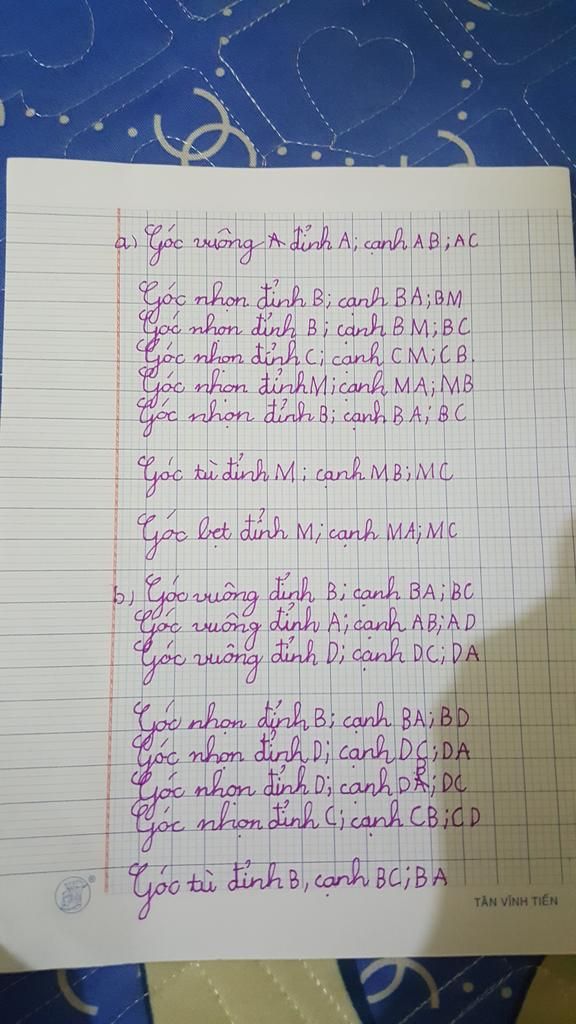 a) Góc vuông A đỉnh A; cạnh AB; AC
Góc nhọn đỉnh B; cạnh BA; BM
Góc nhọn đỉnh B; cạnh BM; BC
Góc nhọn đỉnh C; cạnh CM; CB.
Góc nhọn đỉnh M; cạnh MA; MB
Góc nhọn đỉnh B; cạnh BA; BC
Góc tù đỉnh M; cạnh MB; MC
Góc bẹt đỉnh M; cạnh MA; MC
b) Góc vuông đỉnh B; cạnh BA; BC
Góc vuông đỉnh A; cạnh AB; AD
Góc vuông đỉnh D; cạnh DC; DA
Góc nhọn đỉnh B; cạnh BA; BD
Góc nhọn đỉnh D; cạnh DC; DA
Góc nhọn đỉnh D; cạnh DB; DC
Góc nhọn đỉnh C; cạnh CB; CD
Góc tù đỉnh B, cạnh BC; BA
TÂN VĨNH TIẾN